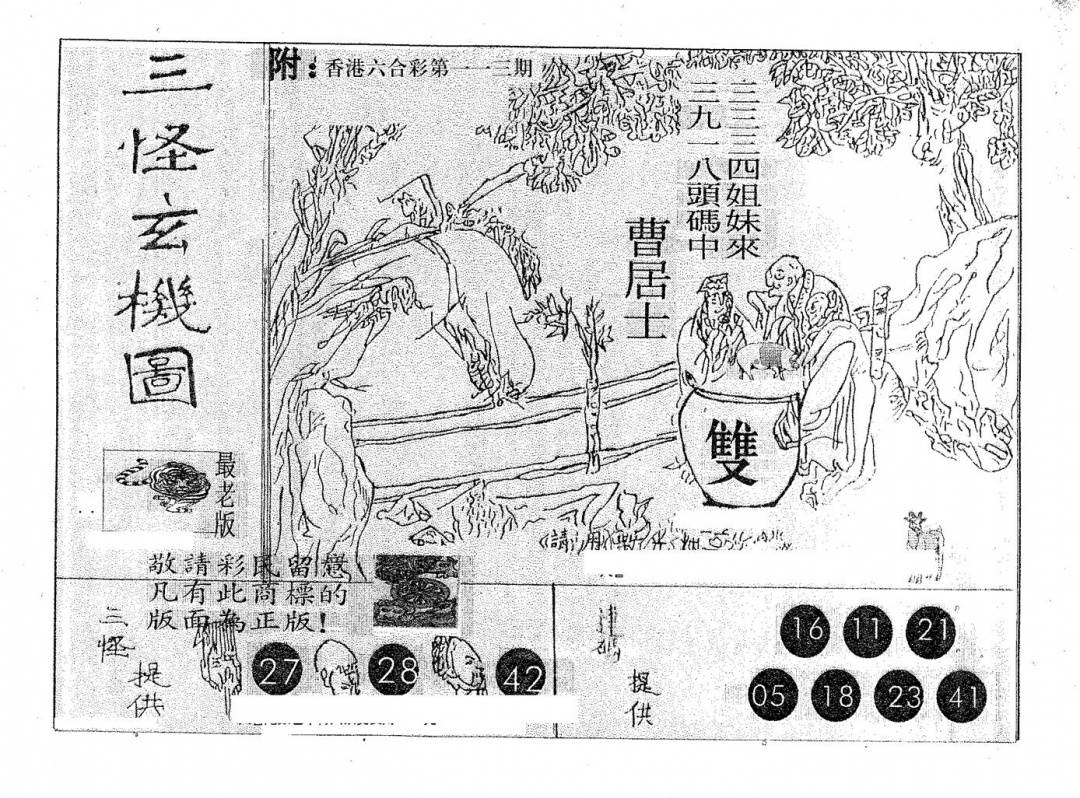 三怪玄機圖
附：香港六合彩第一一三期
三三三四姐妹來
三九一八頭碼中
曹居士
雙
最老版
敬請彩民留意
凡有此商標的
版面為正版！
三怪
提供
27 28 42
提供
16 11 21
05 18 23 41